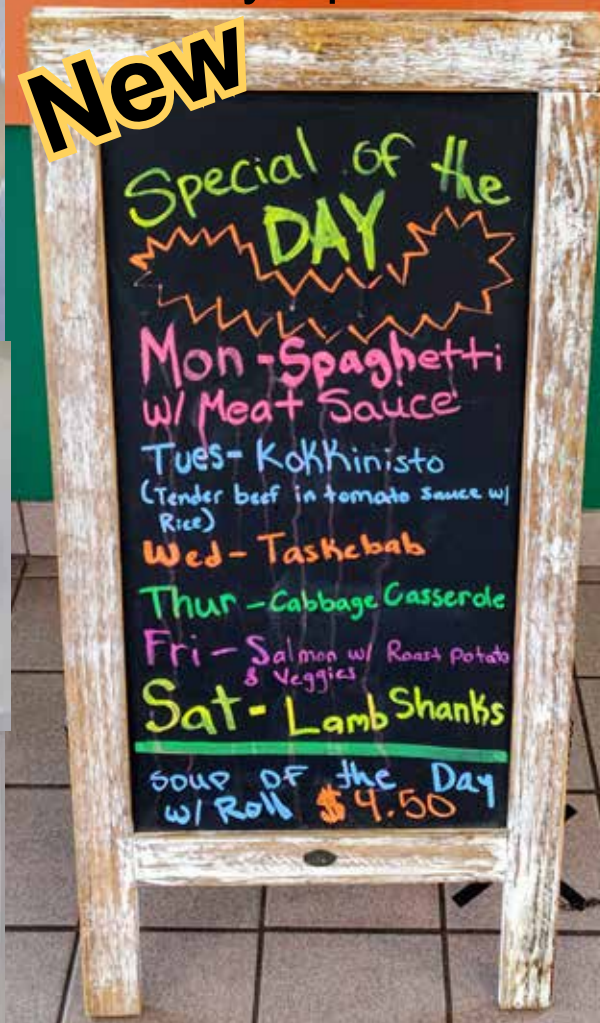 New
Special of the
DAY
Mon - Spaghetti
w/ Meat Sauce
Tues - Kokkinisto
(Tender beef in tomato sauce w/
Rice)
Wed - Taskebab
Thur - Cabbage Casserole
Fri - Salmon w/ Roast Potato
& Veggies
Sat - Lamb Shanks
Soup OF the Day
w/ Roll $4.50